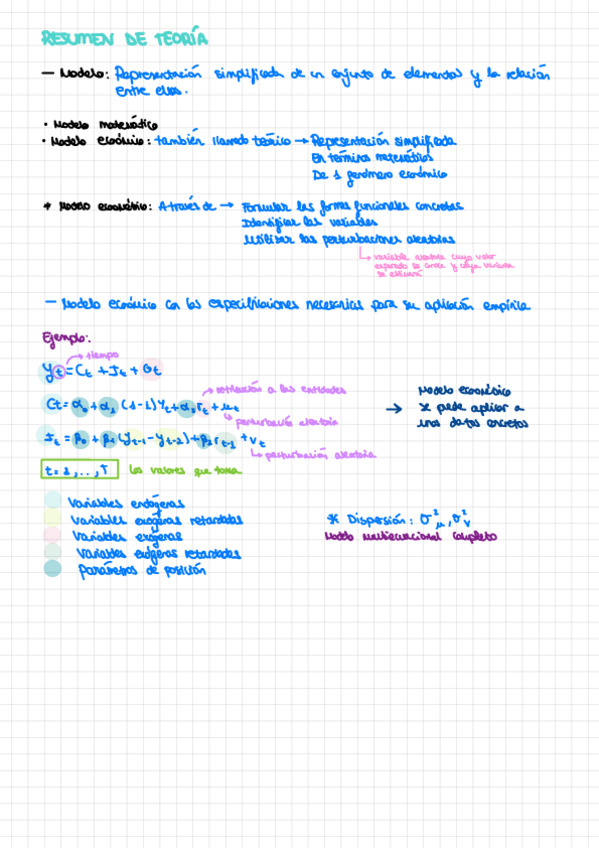 RESUMEN DE TEORÍA
— Modelo: Representación simplificada de un conjunto de elementos y la relación
entre ellos.
• Modelo matemático
• Modelo económico: también llamado teórico → Representación simplificada
En términos matemáticos
De 1 fenómeno económico
* Modelo econométrico: A través de → Formular las formas funcionales concretas
Identificar las variables
Utilizar las perturbaciones aleatorias
↳ variable aleatoria cuyo valor
esperado se conoce y cuya varianza
se estimará
— Modelo económico con las especificaciones necesarias para su aplicación empírica
Ejemplo:
→ tiempo
Yt = Ct + It + Gt
→ retribución a las entidades
Ct = α0 + α1 (1-1) Yt + α2 rt + μt
↳ perturbación aleatoria
It = β0 + β1 (Yt-1 - Yt-2) + β2 rt-1 + vt
↳ perturbación aleatoria
t = 1, .., T los valores que toma
→ Modelo económico
se puede aplicar a
unos datos concretos
Variables endógenas
Variables exógenas retardadas
Variables exógenas
Variables exógenas retardadas
Parámetros de posición
* Dispersión: σ²μ, σ²v
Modelo multiecuacional completo